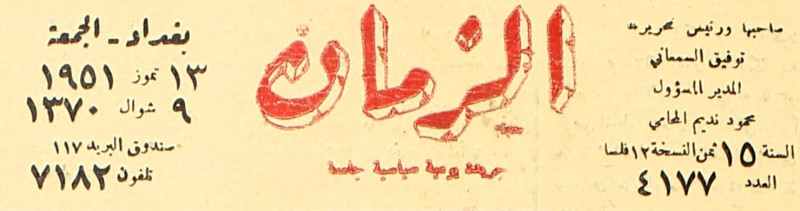 صاحبها ورئيس تحريرها
توفيق السمعاني
المدير المسؤول
محمود نديم المحامي
السنة ١٥ ثمن النسخة ١٢ فلسا
العدد ٤١٧٧
الزمان
جريدة يومية سياسية جامعة
بغداد - الجمعة
١٣ تموز ١٩٥١
٩ شوال ١٣٧٠
صندوق البريد ١١٧
تلفون ٧١٨٢